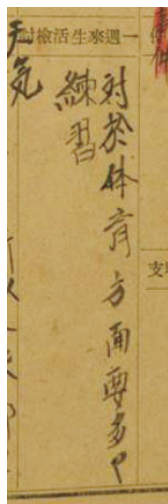 一週來生活檢討
對於体育方面要多
練習
天気
支